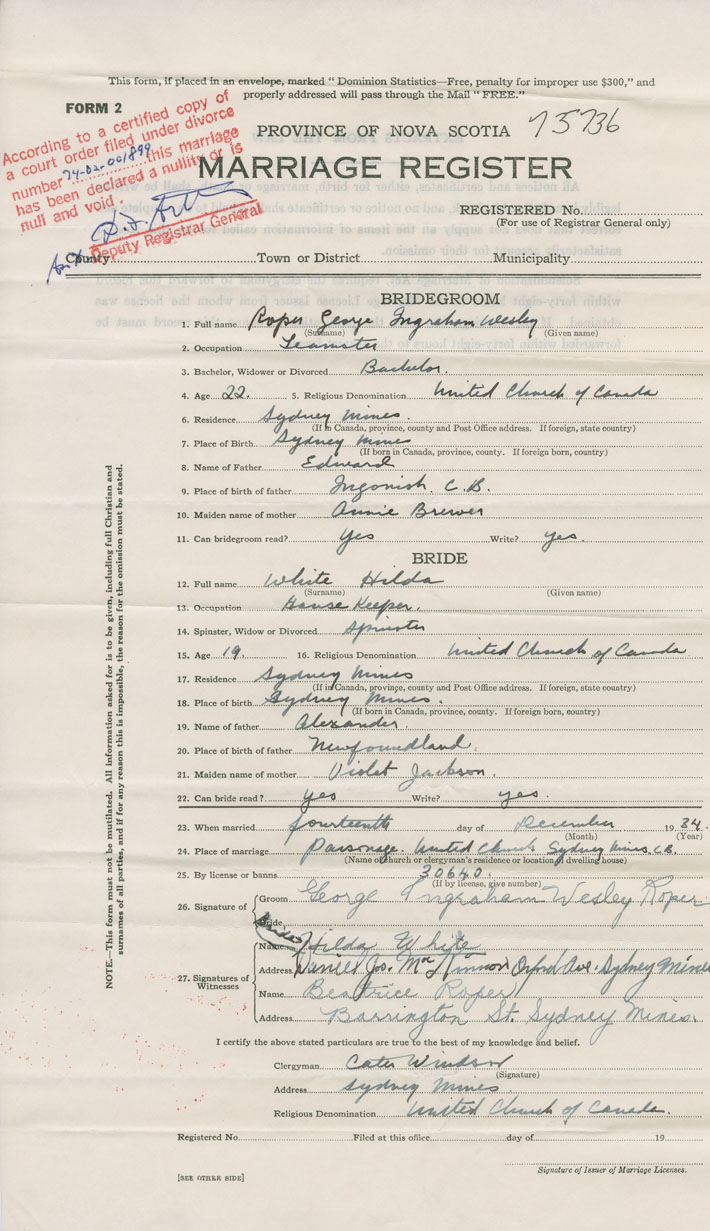 This form, if placed in an envelope, marked " Dominion Statistics—Free, penalty for improper use $300," and
properly addressed will pass through the Mail " FREE."
FORM 2
According to a certified copy of
a court order filed under divorce
number 74-02-001899 this marriage
has been declared a nullity or is
null and void.
Deputy Registrar General
PROVINCE OF NOVA SCOTIA 73736
MARRIAGE REGISTER
REGISTERED No.
(For use of Registrar General only)
County Town or District Municipality
BRIDEGROOM
1. Full name Roper George Ingraham Wesley
(Surname) (Given name)
2. Occupation Teamster
3. Bachelor, Widower or Divorced Bachelor.
4. Age 22. 5. Religious Denomination United Church of Canada
6. Residence Sydney Mines.
(If in Canada, province, county and Post Office address. If foreign, state country)
7. Place of Birth Sydney Mines
(If born in Canada, province, county. If foreign born, country)
8. Name of Father Edward
9. Place of birth of father Ingonish. C.B.
10. Maiden name of mother Annie Brewer
11. Can bridegroom read? Yes Write? yes.
BRIDE
12. Full name White Hilda
(Surname) (Given name)
13. Occupation House Keeper.
14. Spinster, Widow or Divorced Spinster
15. Age 19. 16. Religious Denomination United Church of Canada
17. Residence Sydney Mines
(If in Canada, province, county and Post Office address. If foreign, state country)
18. Place of birth Sydney Mines.
(If born in Canada, province, county. If foreign born, country)
19. Name of father Alexander.
20. Place of birth of father Newfoundland.
21. Maiden name of mother Violet Jackson.
22. Can bride read? yes Write? yes.
23. When married fourteenth day of December 1934.
(Month) (Year)
24. Place of marriage Parsonage. United Church Sydney Mines, C.B.
(Name of church or clergyman's residence or location of dwelling house)
25. By license or banns 30640.
(If by license, give number)
26. Signature of
Groom George Ingraham Wesley Roper
Bride
Brides
Name Hilda White
27. Signatures of
Witnesses
Address Daniel Jos. MacKinnon Orford Ave. Sydney Mines
Name Beatrice Roper
Address Barrington St. Sydney Mines.
I certify the above stated particulars are true to the best of my knowledge and belief.
Clergyman Cater Windsor
(Signature)
Address Sydney Mines.
Religious Denomination United Church of Canada.
Registered No. Filed at this office day of 19
Signature of Issuer of Marriage Licenses.
[SEE OTHER SIDE]
NOTE.—This form must not be mutilated. All information asked for is to be given, including full Christian and
surnames of all parties, and if for any reason this is impossible, the reason for the omission must be stated.